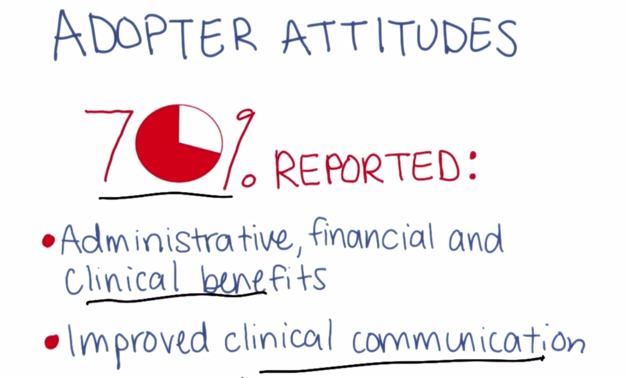 ADOPTER ATTITUDES
70% REPORTED:
• Administrative, financial and
clinical benefits
• Improved clinical communication